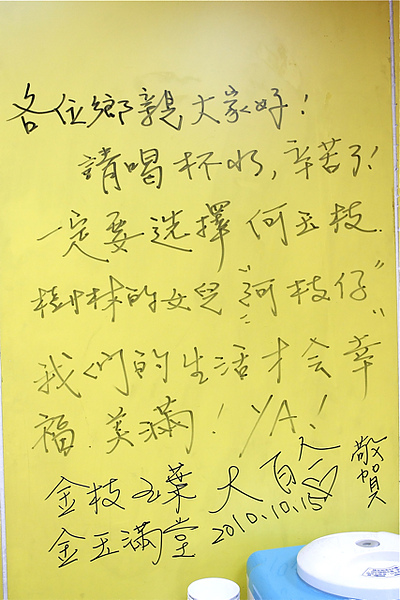 各位鄉親大家好!
請喝杯水,辛苦了!
一定要選擇何玉枝.
樹林的女兒"阿枝仔"
我們的生活才會幸
福.美滿!YA!
金枝玉葉 大百人
金玉滿堂 2010.10.15
敬賀